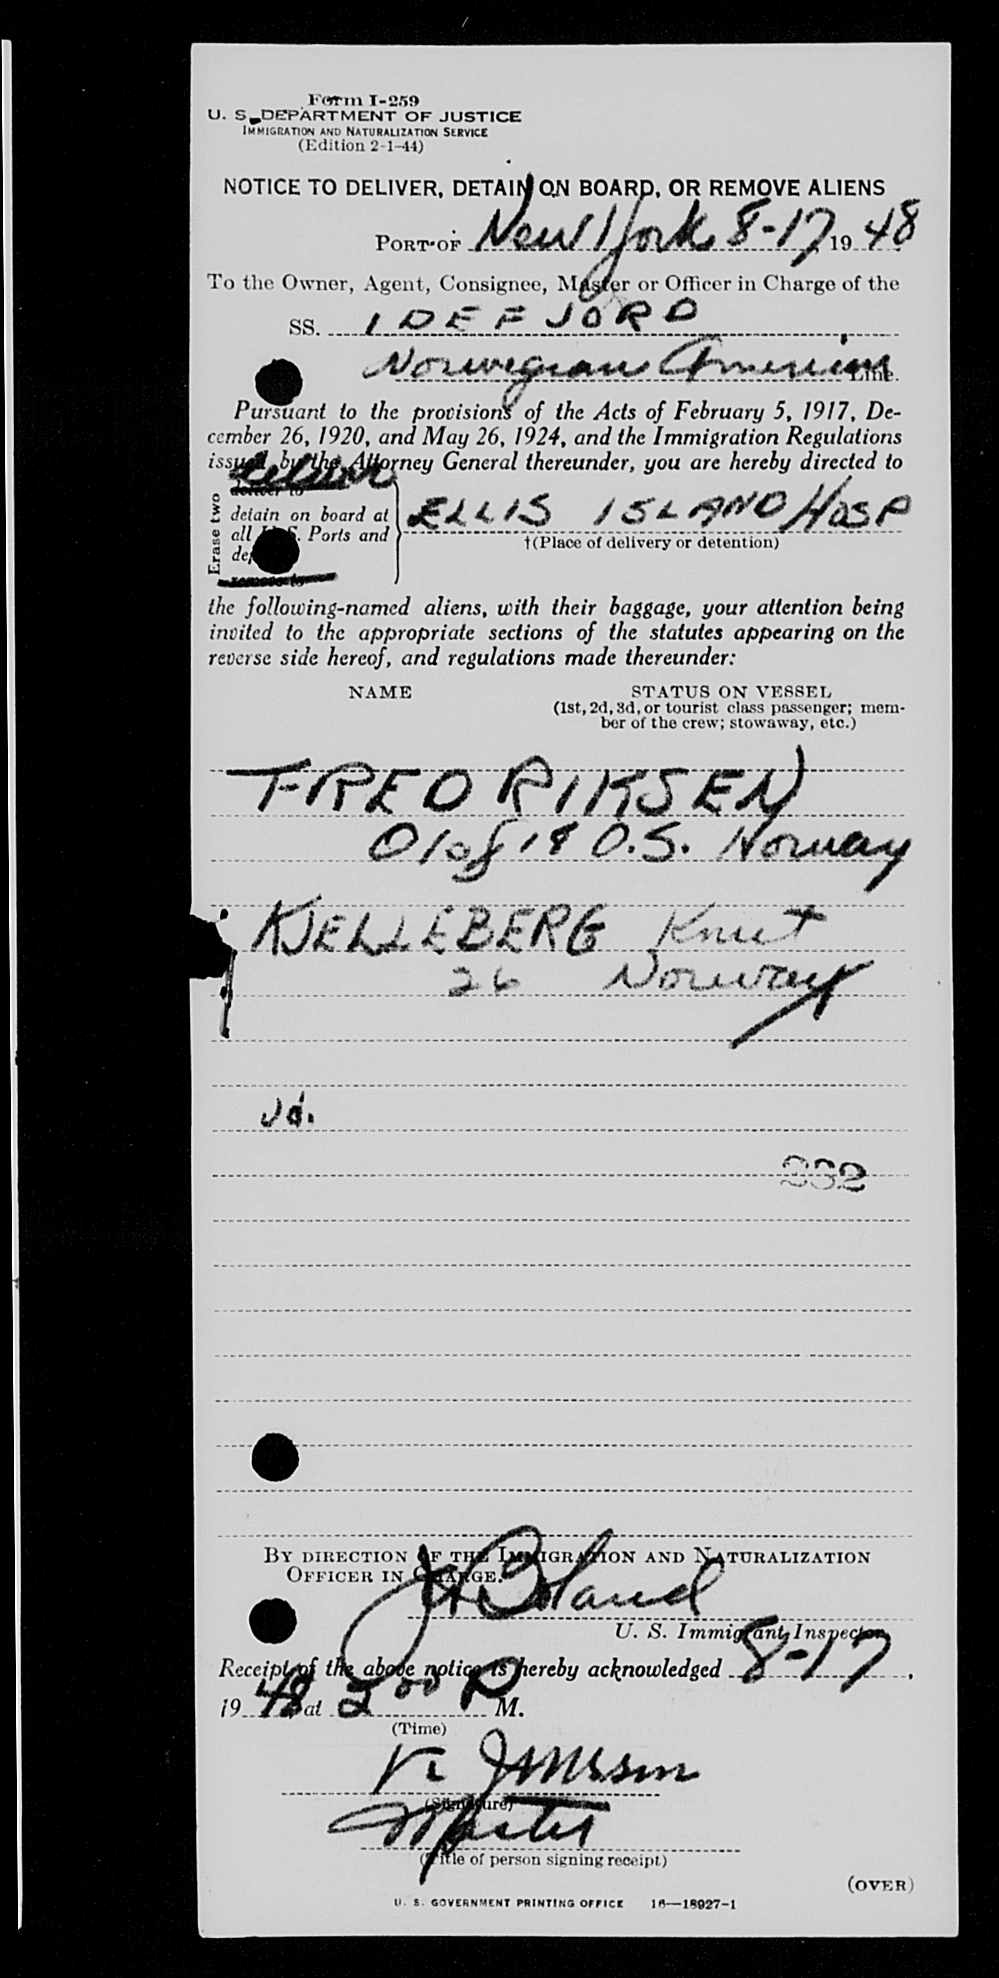 Form I-259
U. S. DEPARTMENT OF JUSTICE
IMMIGRATION AND NATURALIZATION SERVICE
(Edition 2-1-44)
NOTICE TO DELIVER, DETAIN ON BOARD, OR REMOVE ALIENS
PORT OF New York 8-17, 1948
To the Owner, Agent, Consignee, Master or Officer in Charge of the
SS. IDEFJORD
Norwegian American Line.
Pursuant to the provisions of the Acts of February 5, 1917, De-
cember 26, 1920, and May 26, 1924, and the Immigration Regulations
issued by the Attorney General thereunder, you are hereby directed to
Erase two
deliver to
detain on board at
all U. S. Ports and
remove to
ELLIS ISLAND HOSP
†(Place of delivery or detention)
the following-named aliens, with their baggage, your attention being
invited to the appropriate sections of the statutes appearing on the
reverse side hereof, and regulations made thereunder:
NAME STATUS ON VESSEL
(1st, 2d, 3d, or tourist class passenger; mem-
ber of the crew; stowaway, etc.)
FREDRIKSEN
Olof 18 O.S. Norway
KJELLEBERG Knut
26 Norway
232
BY DIRECTION OF THE IMMIGRATION AND NATURALIZATION
OFFICER IN CHARGE.
Boland
U. S. Immigrant Inspector.
Receipt of the above notice is hereby acknowledged 8-17,
1948 at 2 00 P M.
(Time)
(Signature)
Master
(Title of person signing receipt)
(OVER)
U. S. GOVERNMENT PRINTING OFFICE 16—18927-1